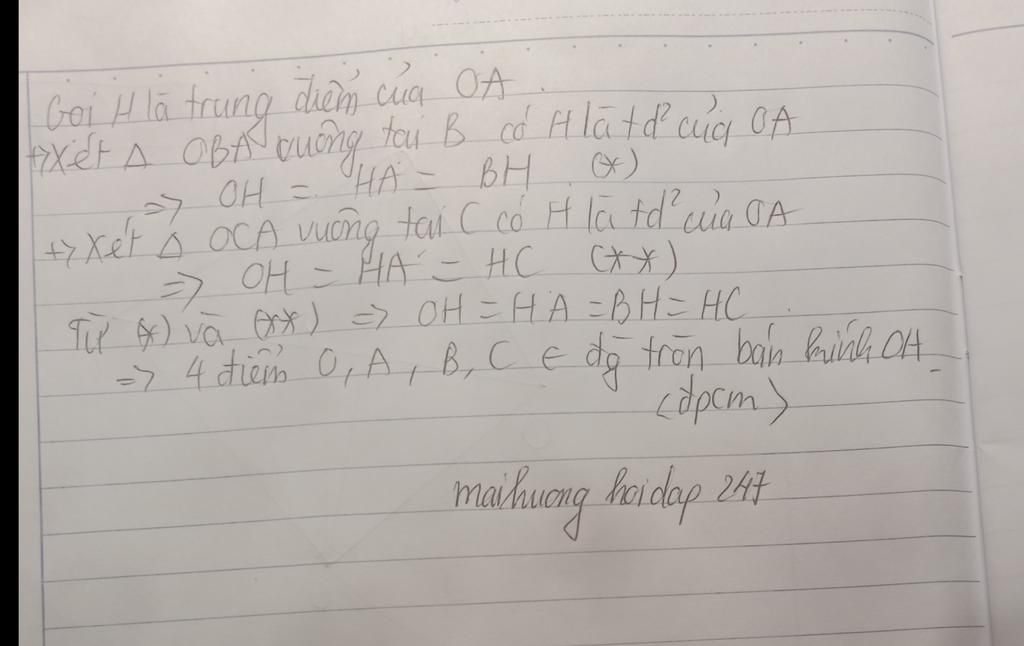 Gọi H là trung điểm của OA.
+> Xét Δ OBA vuông tại B có H là tđ² của OA
=> OH = HA = BH (*)
+> Xét Δ OCA vuông tại C có H là tđ² của OA
=> OH = HA = HC (**)
Từ (*) và (**) => OH = HA = BH = HC.
=> 4 điểm O, A, B, C ∈ đg tròn bán kính OH
(đpcm)
maihuong hoidap 247